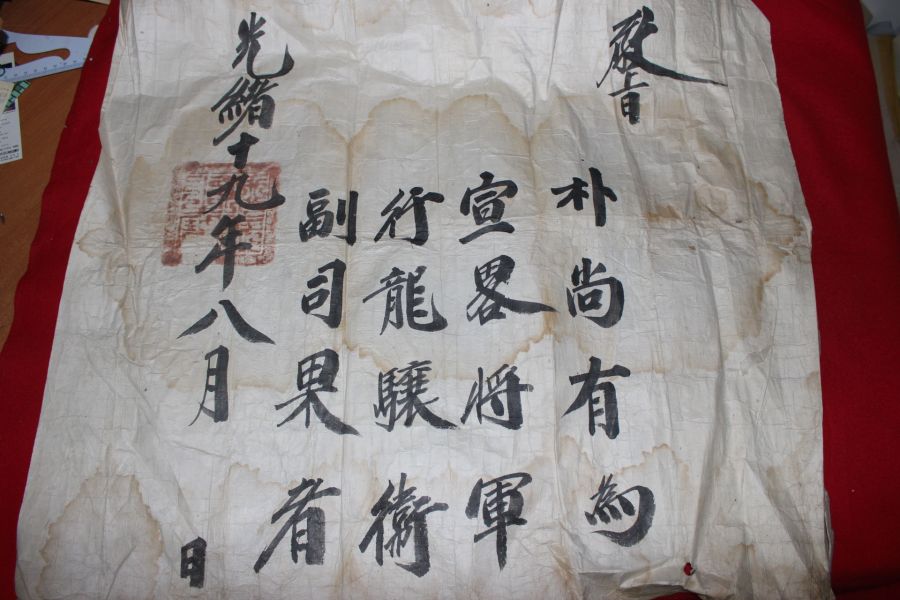 敎旨
朴尚有為
宣畧将軍
行龍驤衛
副司果者
光緒十九年八月 日